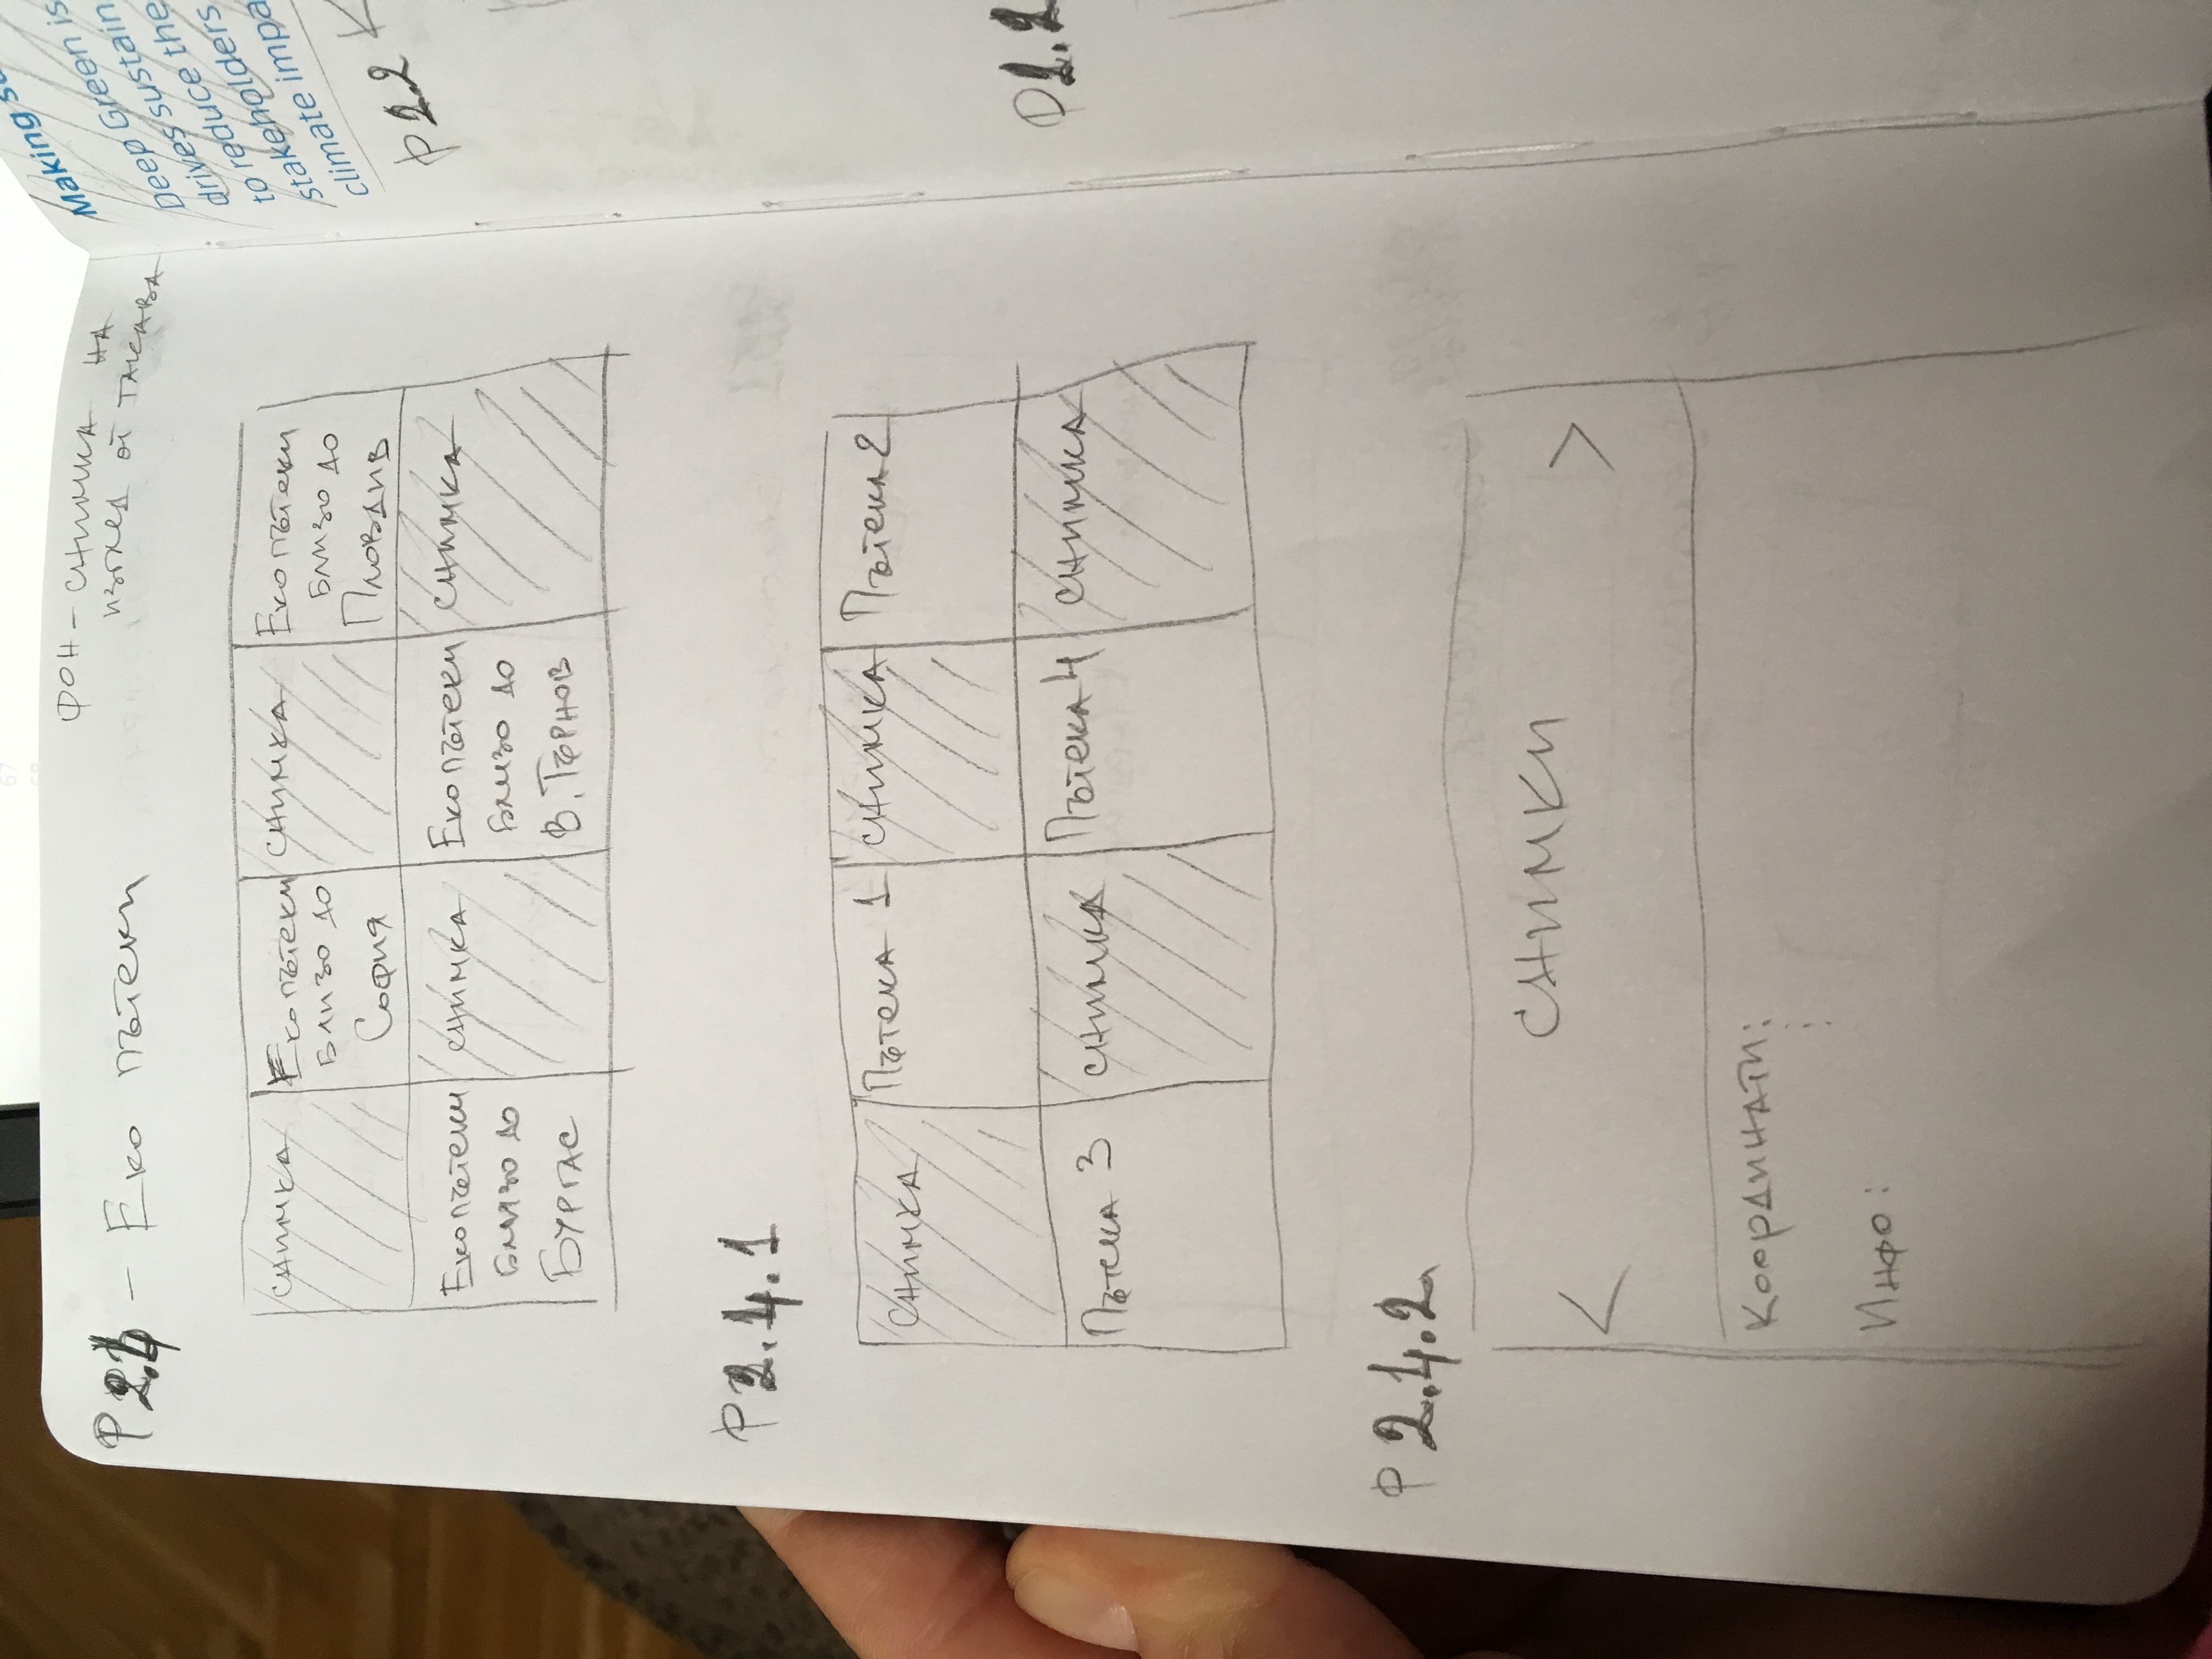 67
68
P 2.4 – Еко пътеки
ФОН – СНИМКА НА
ИЗГЛЕД ОТ ТАКАВА
СНИМКА
Екопътеки
близо до
София
СНИМКА
Екопътеки
близо до
Пловдив
Екопътеки
близо до
Бургас
СНИМКА
Екопътеки
близо до
В. Търнов
СНИМКА
P 2.4.1
СНИМКА
Пътека 1
СНИМКА
Пътека 2
Пътека 3
СНИМКА
Пътека 4
СНИМКА
P 2.4.2
СНИМКИ
< >
Координати:
Инфо:
Making
Deep Green is
drives sustain
to reduce the
stakeholders
climate impa
P 2.2